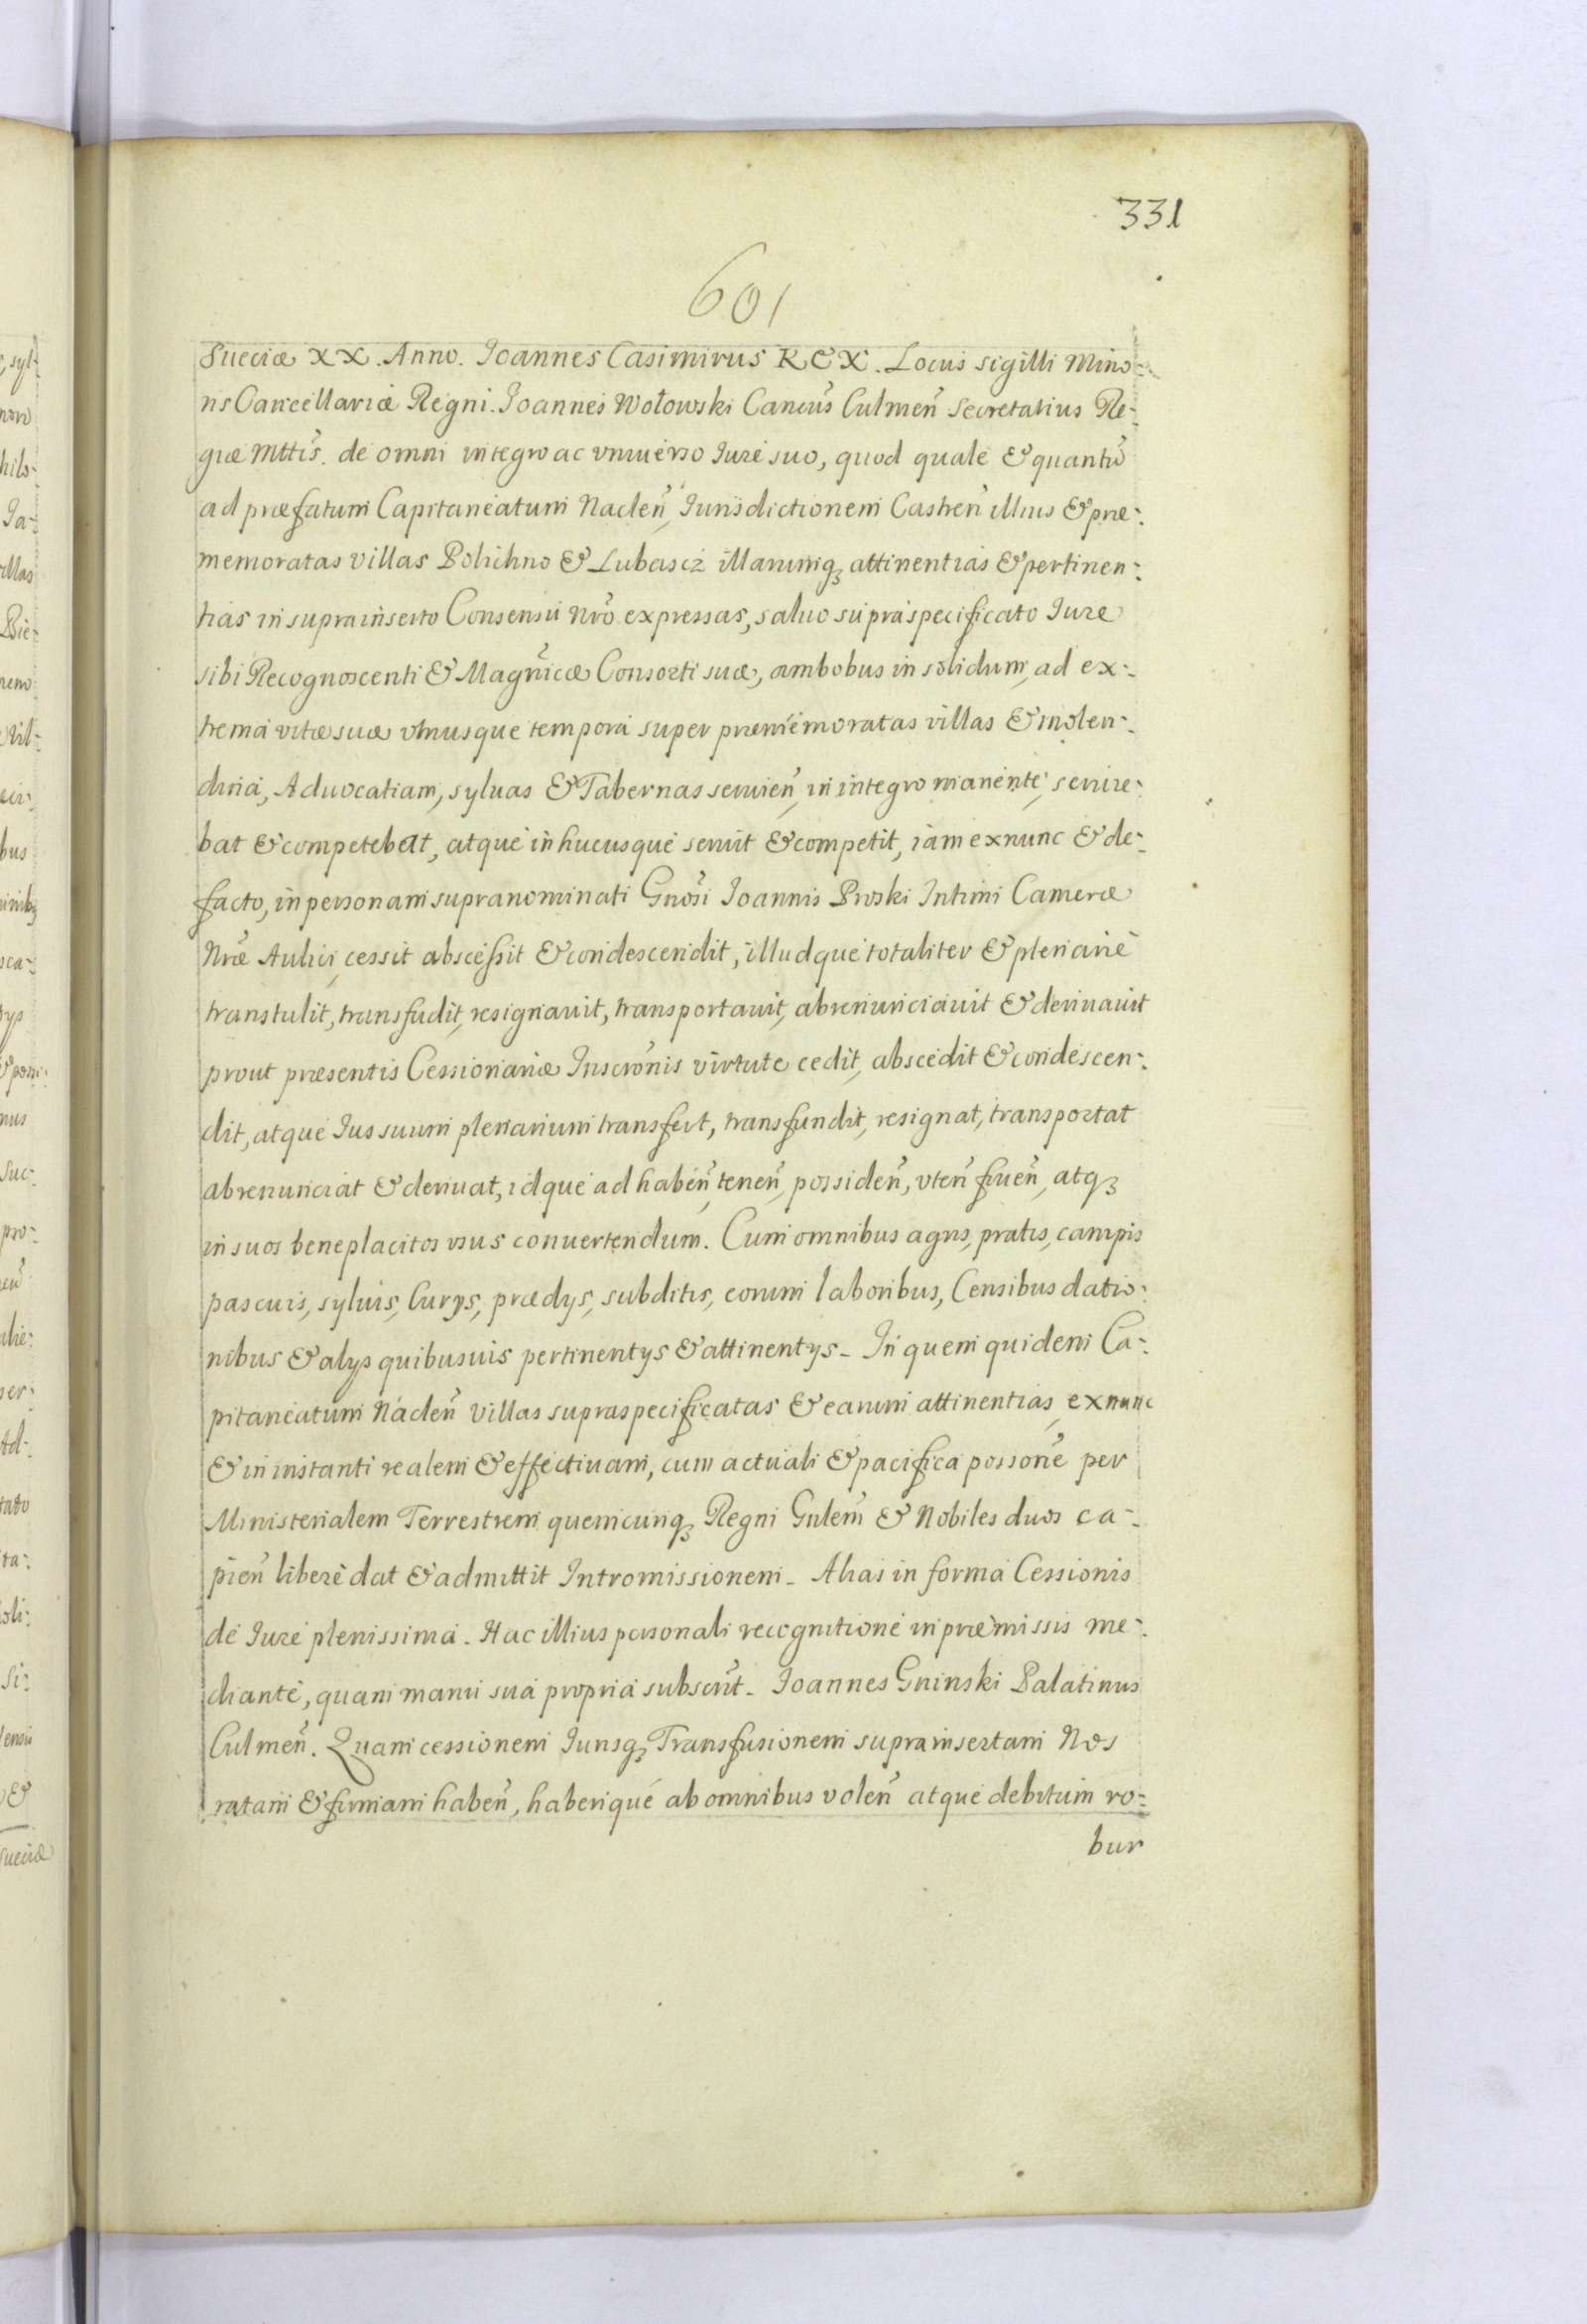 331
601
Sueciæ XX. Anno. Joannes Casimirus REX. Locus sigilli Mino-
ris Cancellariæ Regni. Joannes Wołowski Cancus Culmeñ Secretarius Re-
giæ Mttis. de omni integro ac vniuerso Iure suo, quod quale & quantũ
ad præfatum Capitaneatum Nacleñ, Iurisdictionem Castreñ illius & præ-
memoratas villas Polichno & Lubascz illarumq3 attinentias & pertinen-
tias in suprainserto Consensu nrõ expressas, saluo supraspecificato Iure
sibi Recognoscenti & Magñicæ Consorti suæ, ambobus in solidum, ad ex-
trema vitæ suæ vtriusque tempora super præmemoratas villas & molen-
dina, Aduocatiam, syluas & Tabernas seruieñ, in integro manente, seruie-
bat & competebat, atque in hucusque seruit & competit, iam exnunc & de-
facto, in personam supranominati Gnõsi Joannis Proski Intimi Cameræ
Nræ Aulici, cessit abscessit & condescendit, illudque totaliter & plenarie
transtulit, transfudit, resignauit, transportauit, abrenunciauit & deriuauit
prout præsentis Cessionariæ Inscrõnis virtute cedit, abscedit & condescen-
dit, atque Ius suum plenarium transfert, transfundit, resignat, transportat
abrenunciat & deriuat, idque ad habeñ, teneñ, possideñ, vteñ frueñ, atq3
in suos beneplacitos vsus conuertendum. Cum omnibus agris, pratis, campis
pascuis, syluis, Curys, prædys, subditis, eorum laboribus, Censibus datio-
nibus & alys quibusuis pertinentys & attinentys - In quem quidem Ca-
pitaneatum Nacleñ villas supraspecificatas & earum attinentias, exnunc
& in instanti realem & effectiuam, cum actuali & pacifica possone per
Ministerialem Terrestrem quemcunq3 Regni Gnlem & Nobiles duos ca-
pieñ libere dat & admittit Intromissionem - Alias in forma Cessionis
de Iure plenissima. Hac illius personali recognitione in præmissis me-
diante, quam manu sua propria subscrit - Joannes Gninski Palatinus
Culmeñ. Quam cessionem Iurisq3 Transfusionem suprainsertam Nos
ratam & firmam habeñ, haberique ab omnibus voleñ atque debitum ro-
bur